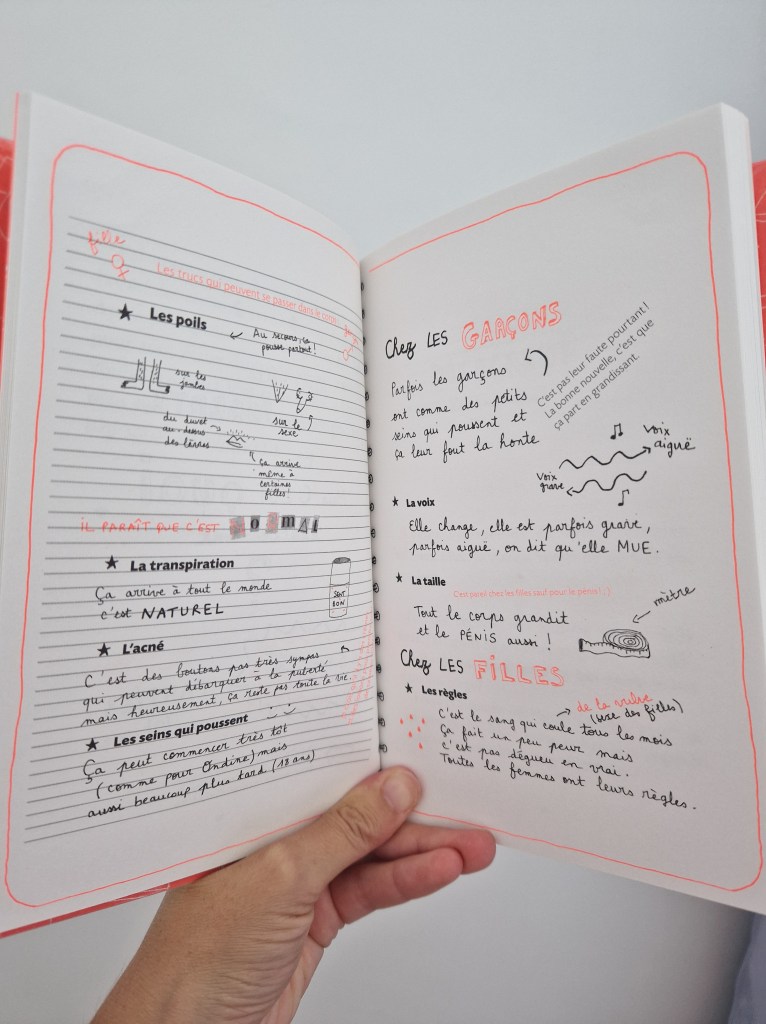 fille
Les trucs qui peuvent se passer dans le corps
★ Les poils
Au secours, ça
pousse partout !
sur les
jambes
sur le
sexe
du duvet
au-dessus
des lèvres
ça arrive
même à
certaines
filles !
IL PARAÎT QUE C'EST NORMAL
★ La transpiration
Ça arrive à tout le monde
c'est NATUREL
SENT
BON
★ L'acné
C'est des boutons pas très sympas
qui peuvent débarquer à la puberté
mais heureusement, ça reste pas toute la vie.
★ Les seins qui poussent
Ça peut commencer très tôt
(comme pour Ondine) mais
aussi beaucoup plus tard (18 ans)
Chez LES GARÇONS
Parfois les garçons
ont comme des petits
seins qui poussent et
ça leur fout la honte
C'est pas leur faute pourtant !
La bonne nouvelle, c'est que
ça part en grandissant.
Voix
aiguë
Voix
grave
★ La voix
Elle change, elle est parfois grave,
parfois aiguë, on dit qu'elle MUE.
★ La taille
C'est pareil chez les filles sauf pour le pénis ! :)
Tout le corps grandit
et le PÉNIS aussi !
mètre
Chez LES FILLES
★ Les règles
de la vulve
(sexe des filles)
C'est le sang qui coule tous les mois
Ça fait un peu peur mais
c'est pas dégueu en vrai.
Toutes les femmes ont leurs règles.